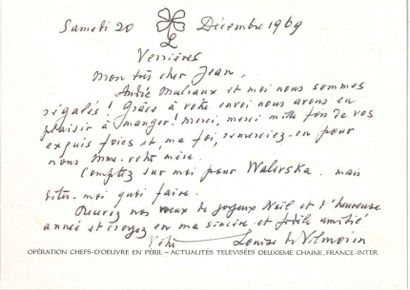 Samedi 20 Décembre 1969
L
Verrières
Mon très cher Jean,
André Malraux et moi nous sommes
régalés ! Grâce à votre envoi nous avons eu
plaisir à manger ! Merci, merci mille fois de vos
exquis foies et, ma foi, remerciez-en pour
nous Mme votre mère.
Comptez sur moi pour Walevska mais
dites-moi quoi faire.
Recevez nos vœux de joyeux Noël et d'heureuse
année et croyez en ma sincère et fidèle amitié
Votre Louise de Vilmorin
OPÉRATION CHEFS-D'OEUVRE EN PÉRIL – ACTUALITÉS TÉLÉVISÉES DEUXIÈME CHAINE, FRANCE-INTER